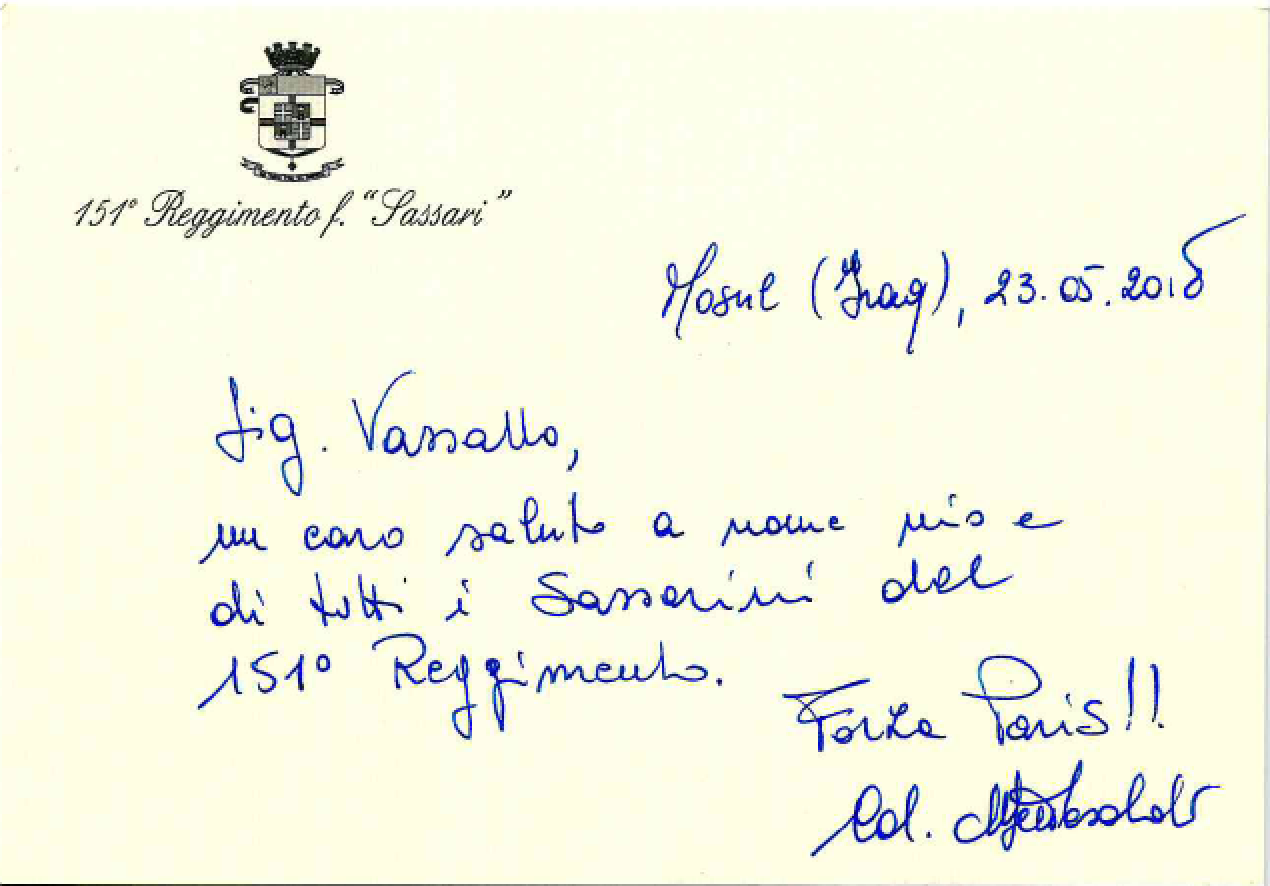 151° Reggimento f. "Sassari"
Mosul (Iraq), 23.05.2018
Sig. Vassallo,
un caro saluto a nome mio e
di tutti i Sassarini del
151° Reggimento.
Forza Paris!!
Col.